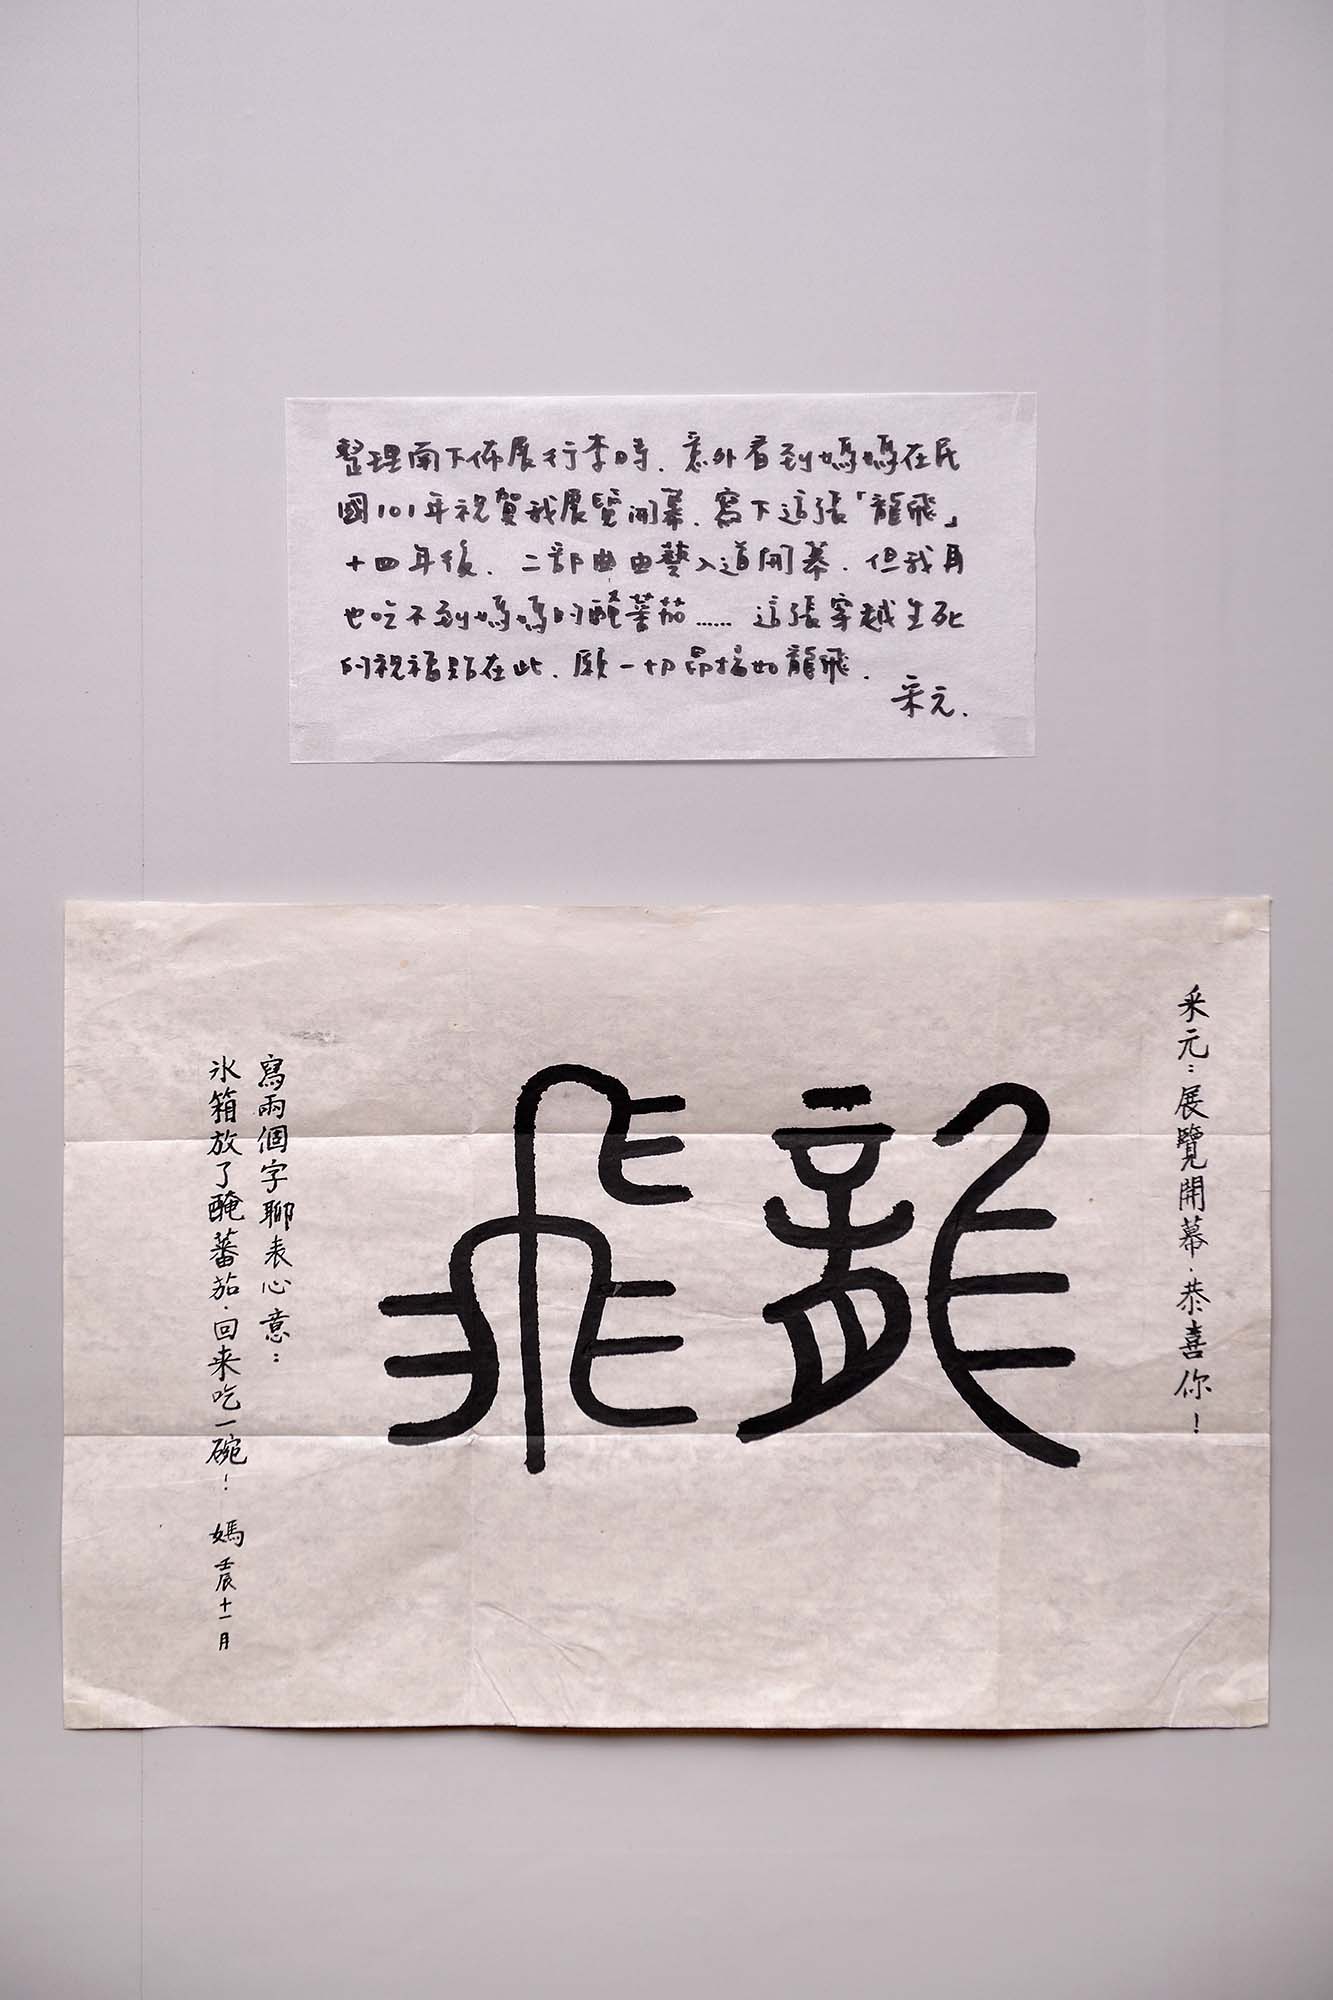 整理南下佈展行李時、意外看到媽媽在民
國101年祝賀我展覽開幕、寫下這張「龍飛」
十四年後、二部曲由藝入道開幕、但我再
也吃不到媽媽的醃蕃茄…… 這張穿越生死
的祝福貼在此、願一切昂揚如龍飛.
采元.
采元：展覽開幕，恭喜你！
龍飛
寫兩個字聊表心意：
氷箱放了醃蕃茄，回来吃一碗！ 媽 壬辰十一月